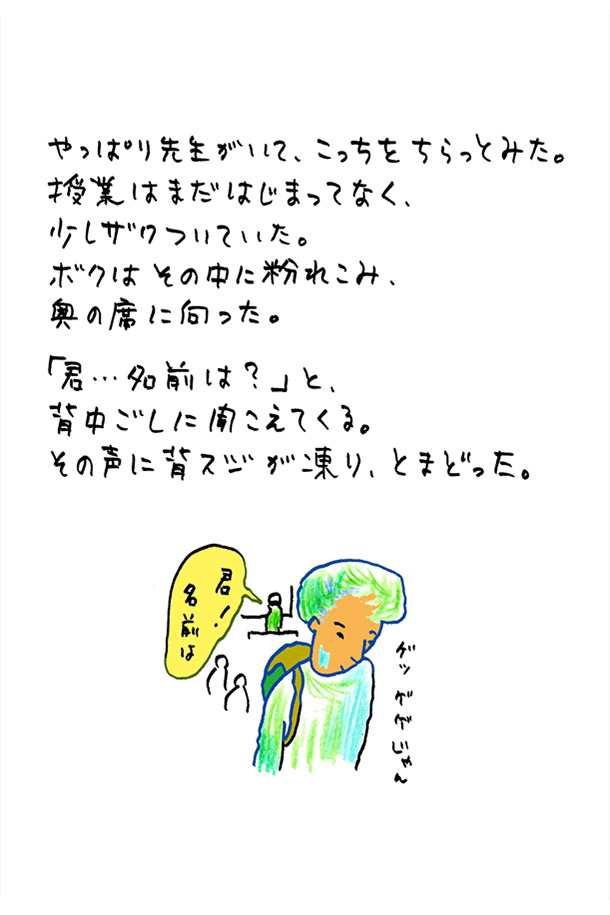 やっぱり先生がいて、こっちをちらっとみた。
授業はまだはじまってなく、
少しザワついていた。
ボクはその中に粉れこみ、
奥の席に向った。
「君…名前は？」と、
背中ごしに聞こえてくる。
その声に背スジが凍り、とまどった。
君！
名前は
ゲッ ゲゲじゃん